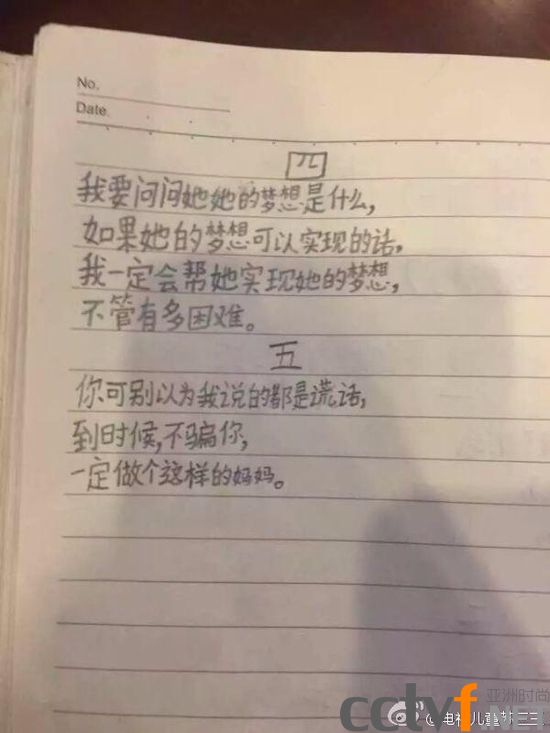 No.
Date.
四
我要问问她她的梦想是什么,
如果她的梦想可以实现的话,
我一定会帮她实现她的梦想,
不管有多困难。
五
你可别以为我说的都是谎话,
到时候,不骗你,
一定做个这样的妈妈。
亚洲时尚
cctvf.NET
@电视儿童林三三